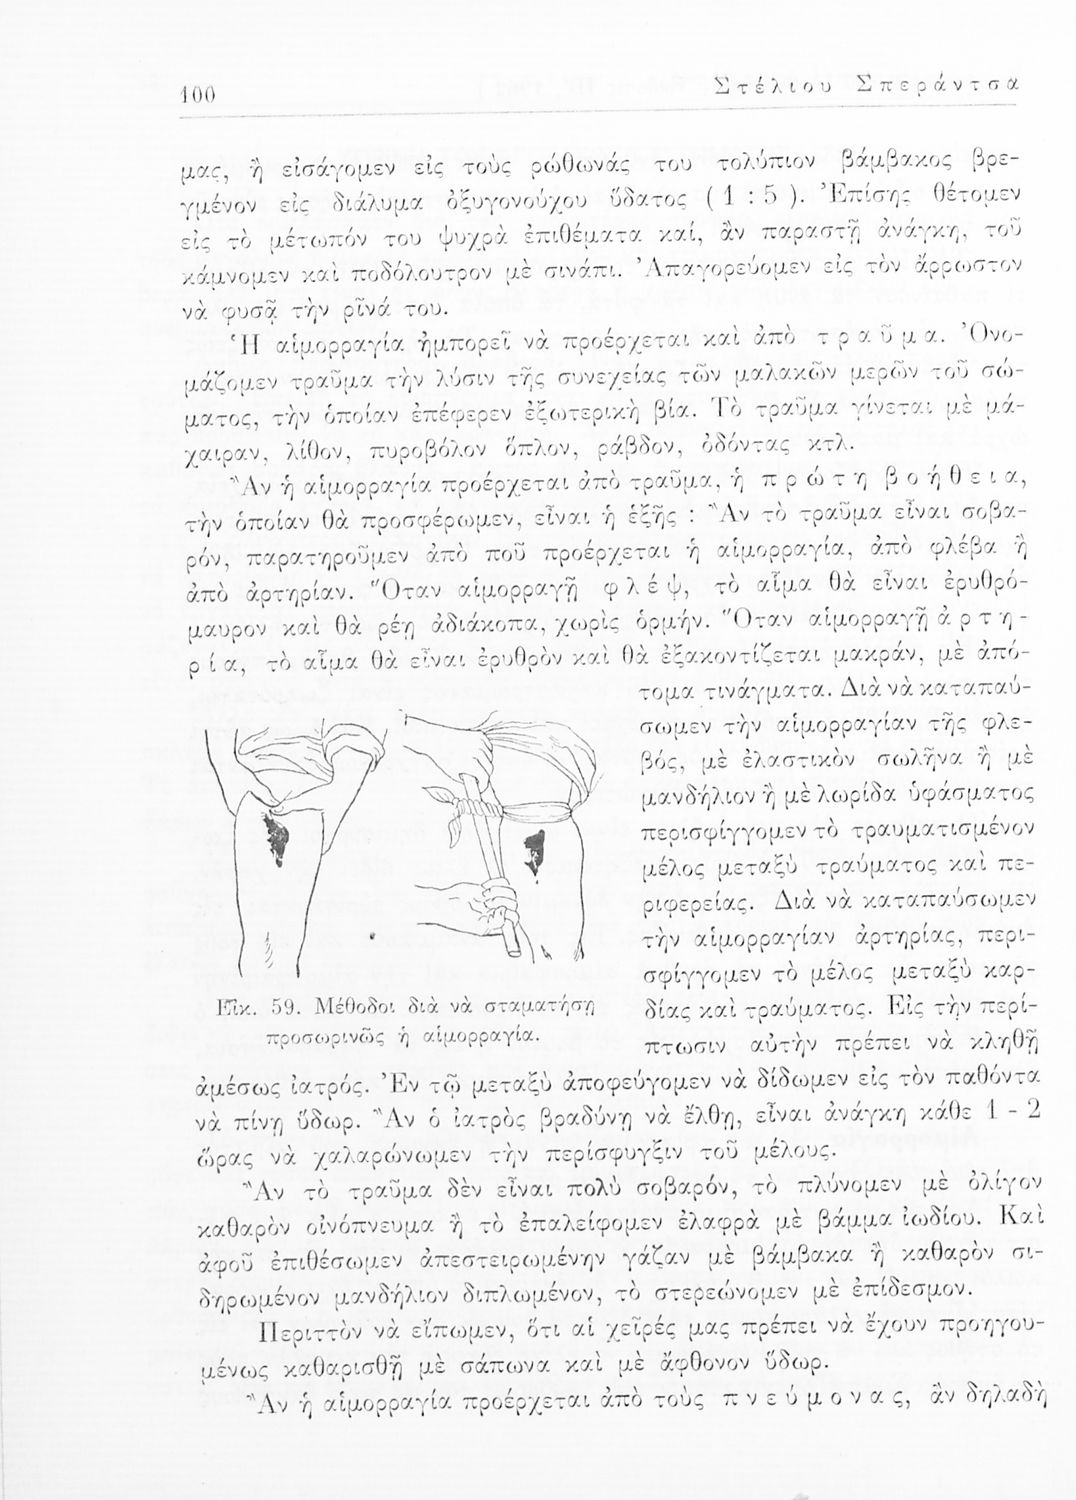 100
Στέλιου Σπεράντσα
μας, ἢ εἰσάγομεν εἰς τοὺς ρώθωνάς του τολύπιον βάμβακος βρε-
γμένον εἰς διάλυμα ὀξυγονούχου ὕδατος ( 1 : 5 ). Ἐπίσης θέτομεν
εἰς τὸ μέτωπόν του ψυχρὰ ἐπιθέματα καί, ἂν παραστῇ ἀνάγκη, τοῦ
κάμνομεν καὶ ποδόλουτρον μὲ σινάπι. Ἀπαγορεύομεν εἰς τὸν ἄρρωστον
νὰ φυσᾷ τὴν ρῖνά του.
Ἡ αἱμορραγία ἠμπορεῖ νὰ προέρχεται καὶ ἀπὸ τραῦμα. Ὀνο-
μάζομεν τραῦμα τὴν λύσιν τῆς συνεχείας τῶν μαλακῶν μερῶν τοῦ σώ-
ματος, τὴν ὁποίαν ἐπέφερεν ἐξωτερικὴ βία. Τὸ τραῦμα γίνεται μὲ μά-
χαιραν, λίθον, πυροβόλον ὅπλον, ράβδον, ὀδόντας κτλ.
Ἂν ἡ αἱμορραγία προέρχεται ἀπὸ τραῦμα, ἡ πρώτη βοήθεια,
τὴν ὁποίαν θὰ προσφέρωμεν, εἶναι ἡ ἑξῆς : Ἂν τὸ τραῦμα εἶναι σοβα-
ρόν, παρατηροῦμεν ἀπὸ ποῦ προέρχεται ἡ αἱμορραγία, ἀπὸ φλέβα ἢ
ἀπὸ ἀρτηρίαν. Ὅταν αἱμορραγῇ φλέψ, τὸ αἷμα θὰ εἶναι ἐρυθρό-
μαυρον καὶ θὰ ρέῃ ἀδιάκοπα, χωρὶς ὁρμήν. Ὅταν αἱμορραγῇ ἀρτη-
ρία, τὸ αἷμα θὰ εἶναι ἐρυθρὸν καὶ θὰ ἐξακοντίζεται μακράν, μὲ ἀπό-
τομα τινάγματα. Διὰ νὰ καταπαύ-
σωμεν τὴν αἱμορραγίαν τῆς φλε-
βός, μὲ ἐλαστικὸν σωλῆνα ἢ μὲ
μανδήλιον ἢ μὲ λωρίδα ὑφάσματος
περισφίγγομεν τὸ τραυματισμένον
μέλος μεταξὺ τραύματος καὶ πε-
ριφερείας. Διὰ νὰ καταπαύσωμεν
τὴν αἱμορραγίαν ἀρτηρίας, περι-
σφίγγομεν τὸ μέλος μεταξὺ καρ-
δίας καὶ τραύματος. Εἰς τὴν περί-
πτωσιν αὐτὴν πρέπει νὰ κληθῇ
Εἰκ. 59. Μέθοδοι διὰ νὰ σταματήσῃ
προσωρινῶς ἡ αἱμορραγία.
ἀμέσως ἰατρός. Ἐν τῷ μεταξὺ ἀποφεύγομεν νὰ δίδωμεν εἰς τὸν παθόντα
νὰ πίνῃ ὕδωρ. Ἂν ὁ ἰατρὸς βραδύνῃ νὰ ἔλθῃ, εἶναι ἀνάγκη κάθε 1 - 2
ὥρας νὰ χαλαρώνωμεν τὴν περίσφυγξιν τοῦ μέλους.
Ἂν τὸ τραῦμα δὲν εἶναι πολὺ σοβαρόν, τὸ πλύνομεν μὲ ὀλίγον
καθαρὸν οἰνόπνευμα ἢ τὸ ἐπαλείφομεν ἐλαφρὰ μὲ βάμμα ἰωδίου. Καὶ
ἀφοῦ ἐπιθέσωμεν ἀπεστειρωμένην γάζαν μὲ βάμβακα ἢ καθαρὸν σι-
δηρωμένον μανδήλιον διπλωμένον, τὸ στερεώνομεν μὲ ἐπίδεσμον.
Περιττὸν νὰ εἴπωμεν, ὅτι αἱ χεῖρές μας πρέπει νὰ ἔχουν προηγου-
μένως καθαρισθῇ μὲ σάπωνα καὶ μὲ ἄφθονον ὕδωρ.
Ἂν ἡ αἱμορραγία προέρχεται ἀπὸ τοὺς πνεύμονας, ἂν δηλαδὴ